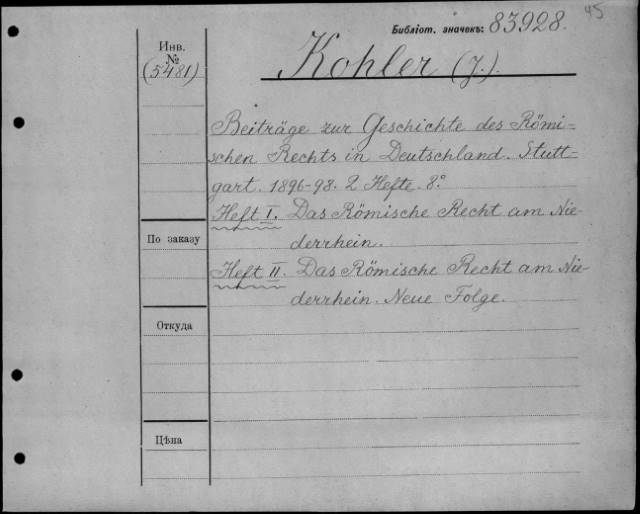 45
Библіот. значекъ: 83928.
Инв.
№
(5481)
Kohler (J.).
Beiträge zur Geschichte des Römi-
schen Rechts in Deutschland. Stutt-
gart. 1896-98. 2 Hefte. 8.°
Heft I. Das Römische Recht am Nie-
derrhein.
Heft II. Das Römische Recht am Nie-
derrhein. Neue Folge.
По заказу
Откуда
Цѣна